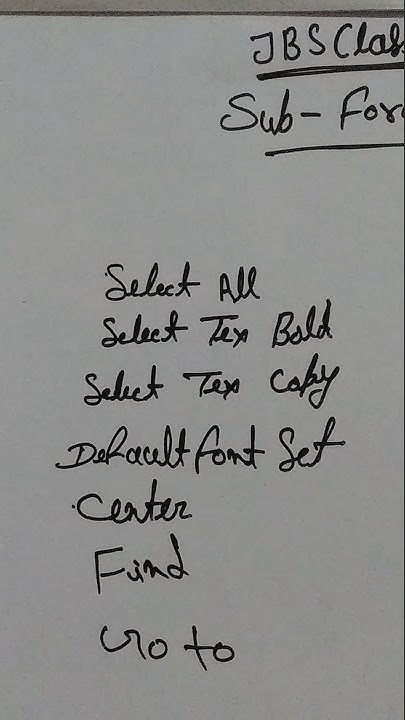 JBS Clas
Sub- For
Select All
Select Tex Bold
Select Tex Copy
Default font Set
Center
Find
Go to